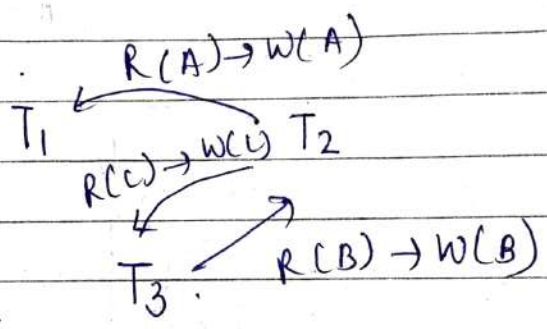 R(A)→W(A)
T1 T2
R(C)→W(C)
T3. R(B)→W(B)